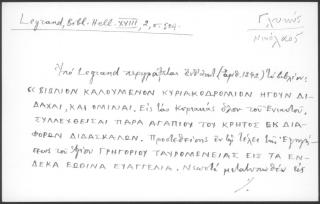 Legrand, Bibl. Hell. XVIII, 2, σ. 524.
Γλυκύς
Νικόλαος
Ὑπὸ Legrand περιγράφεται ἐνθάδε (ἀριθ. 1242) τὸ βιβλίον:
« ΒΙΒΛΙΟΝ ΚΑΛΟΥΜΕΝΟΝ ΚΥΡΙΑΚΟΔΡΟΜΙΟΝ ΗΓΟΥΝ ΔΙ-
ΔΑΧΑΙ, ΚΑΙ ΟΜΙΛΙΑΙ. Εἰς τὰς Κυριακὰς ὅλου τοῦ Ἐνιαυτοῦ.
ΣΥΛΛΕΧΘΕΙΣΑΙ ΠΑΡΑ ΑΓΑΠΙΟΥ ΤΟΥ ΚΡΗΤΟΣ ΕΚ ΔΙΑ-
ΦΟΡΩΝ ΔΙΔΑΣΚΑΛΩΝ. Προστεθείσης ἐν τῷ τέλει τῆς Ἑρμηνεί-
ας τοῦ Ἁγίου ΓΡΗΓΟΡΙΟΥ ΤΑΥΡΟΜΕΝΕΙΑΣ ΕΙΣ ΤΑ ΕΝ-
ΔΕΚΑ ΕΩΘΙΝΑ ΕΥΑΓΓΕΛΙΑ. Νεωστὶ μετατυπωθὲν εἰς